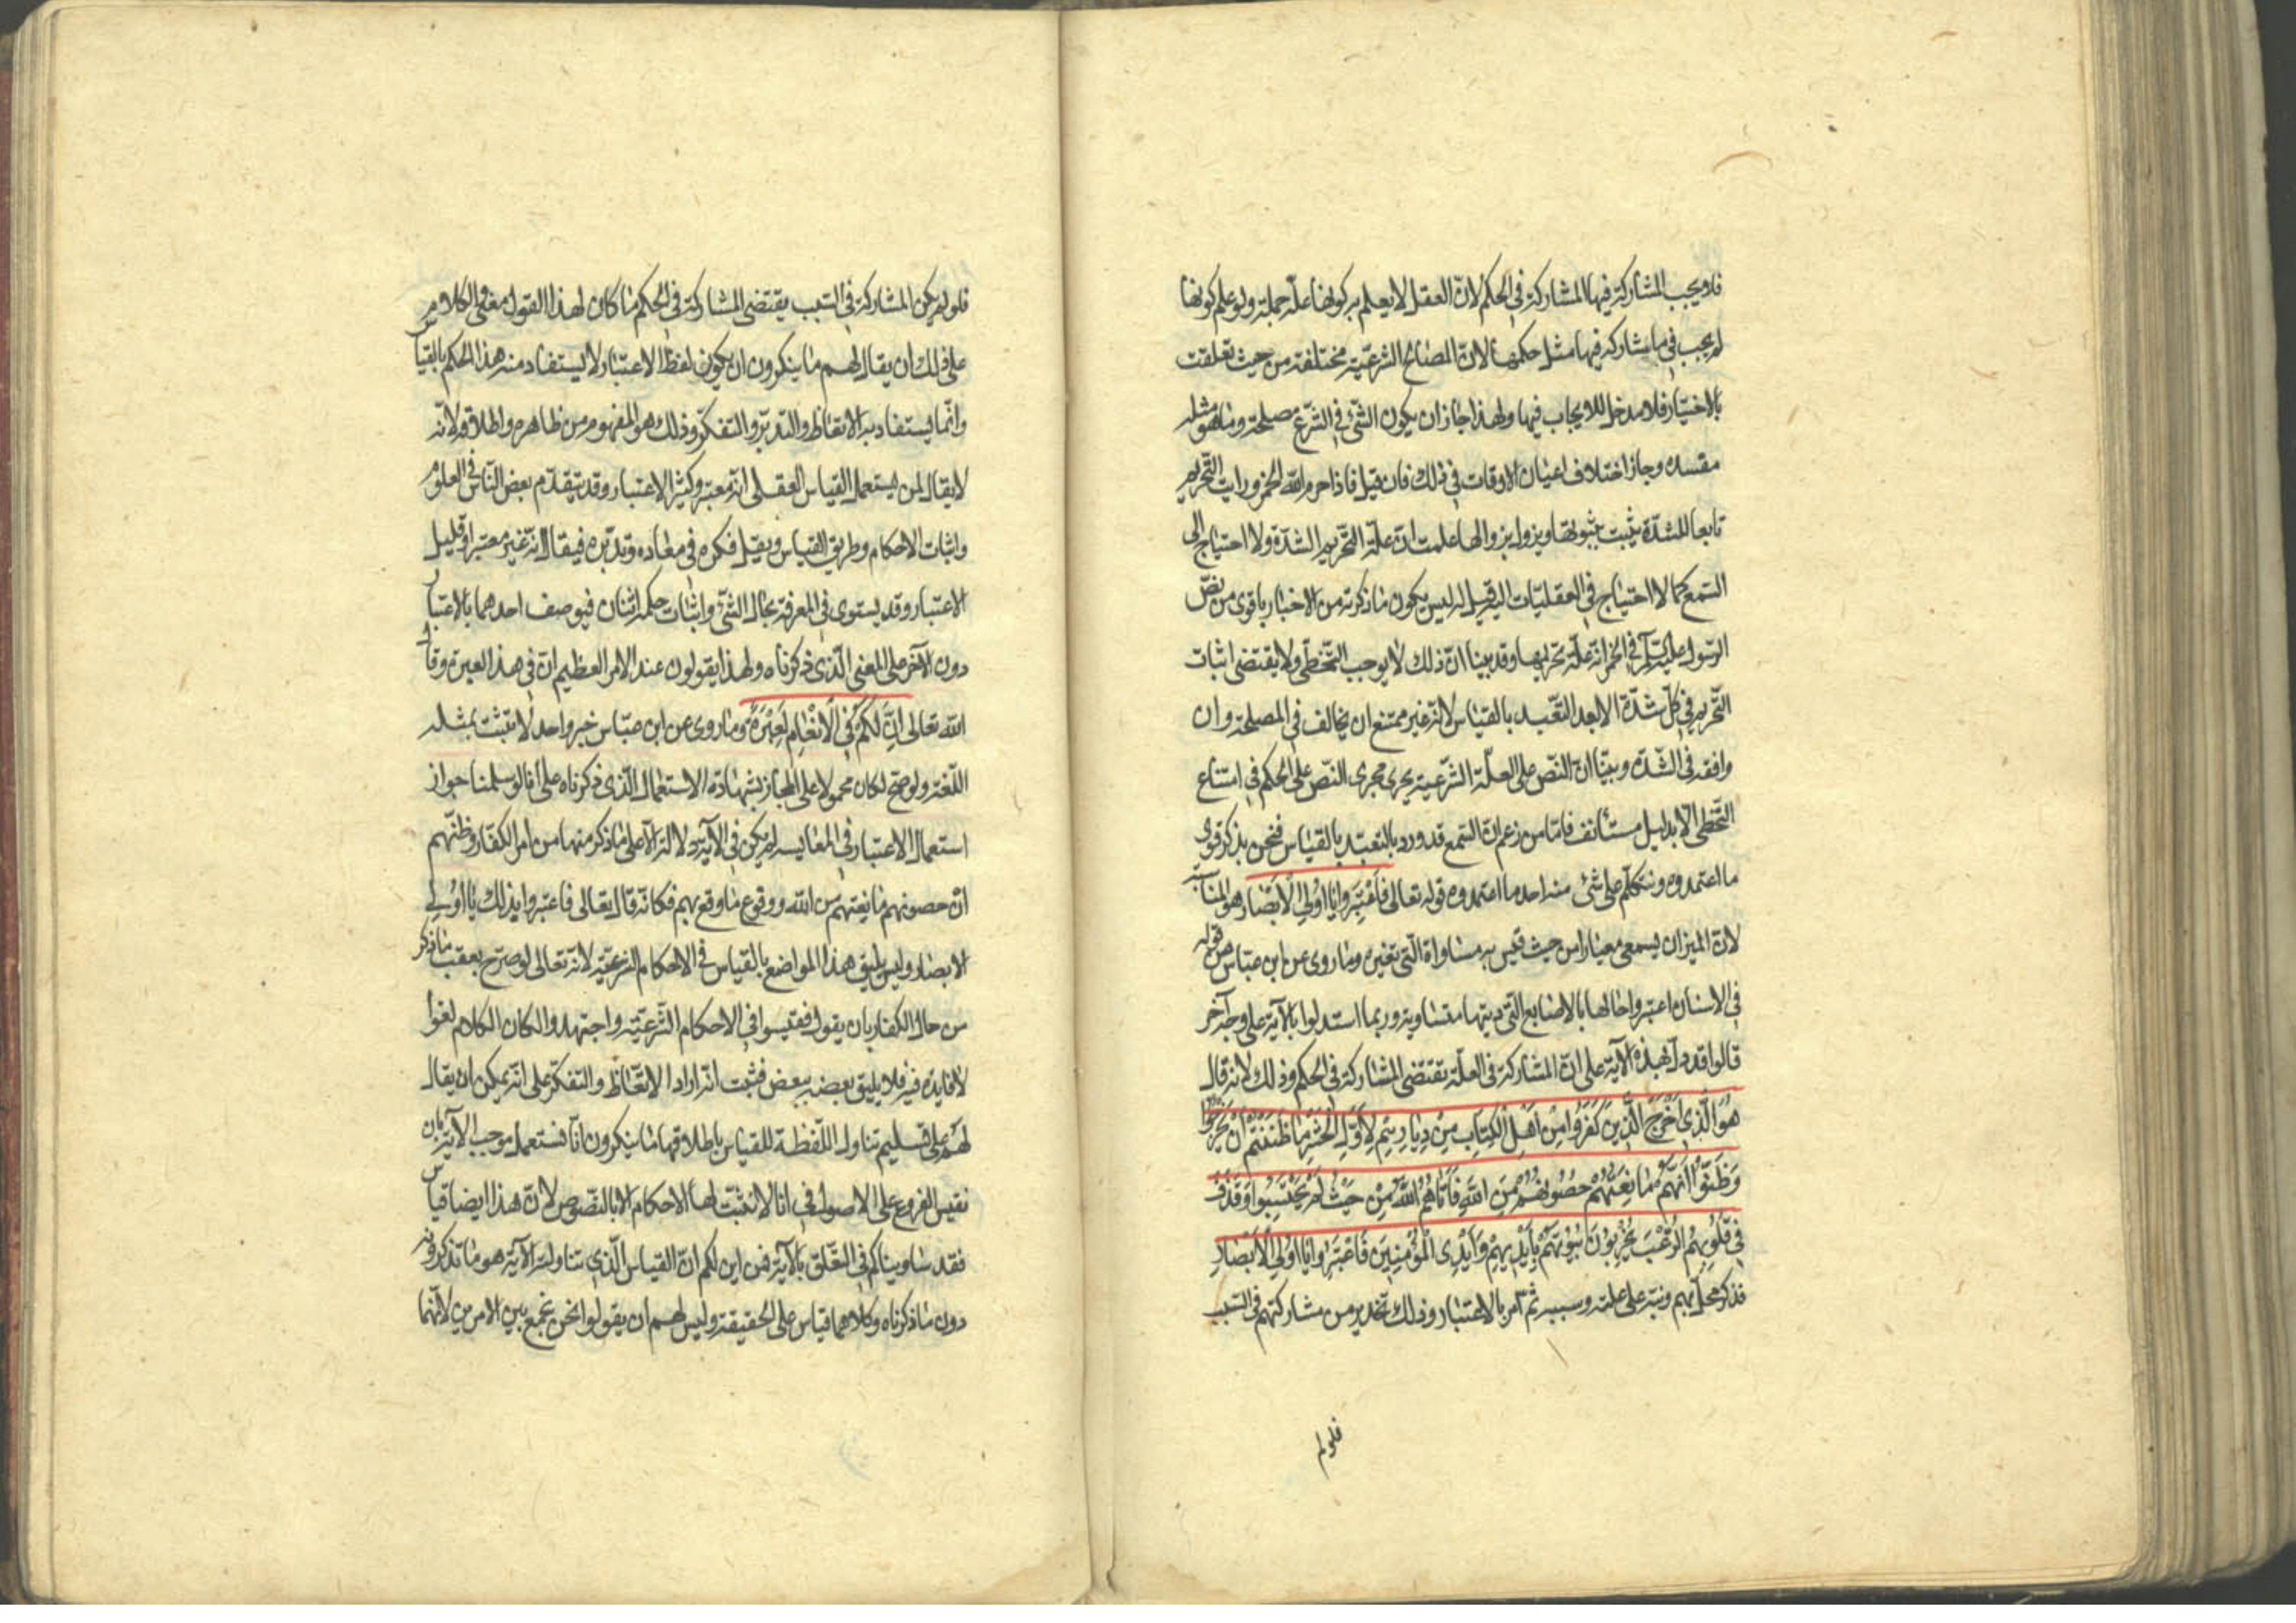 فلا يجب المشاركة فيها المشاركة في الحكم لانّ العقل لا يعلم به كونها علّة جملة ولو علم كونها
لم يجب في ما يشاركه فيها مثل حكمها لانّ المصالح الشرعيّة مختلفة من حيث تعلقت
بالاختيار فلا مدخل للايجاب فيها ولهذا جاز ان يكون الشئ في الشّرع مصلحة وما هو مثله
مفسدة وجاز اختلاف اعيان الاوقات في ذلك فان قيل فاذا حرم الله الخمر ورايت التّحريم
تابعا للشدّة يثبت بثبوتها ويزول بزوالها علمت انّ علّة التّحريم الشدّة ولا احتياج الى
السّمع كما لا احتياج في العقليّات اليه قيل له ليس يكون ما ذكرته من الاخبار باقوى من نصّ
الرّسول في الخمر انّه علّة تحريمها وقد بينا انّ ذلك لا يوجب التّخطّى ولا يقتضى اثبات
التّحريم في كلّ شدّة الا بعد التّعبد بالقياس لانّه غير ممتنع ان يخالف في المصلحة وان
وافقه في الشّدّة وبيّنا انّ النّص على العلّة الشّرعيّة يجرى مجرى النّص على الحكم في امتناع
التّخطى الا بدليل مستأنف فامّا من زعم انّ السّمع قد ورد بالتعبد بالقياس فنحن نذكر قوى
ما اعتمدوه ونتكلّم على شئ منه احد ما اعتمدوه قوله تعالى فَاعْتَبِرُوا يَا اُولِي الْاَبْصَار
لانّ الميزان يسمى معيارا من حيث قيس به مساواة الّتى تغيره وما روى عن ابن عبّاس من قوله
في الاسنان اعتبروا حالها بالاصابع الّتى ديتها متساوية وربما استدلوا بالآية على وجه آخر
قالوا قد دلّ بهذه الآية على انّ المشاركة في العلّة يقتضى المشاركة في الحكم وذلك لانّه قال
هُوَ الَّذِي اَخْرَجَ الَّذِينَ كَفَرُوا مِنْ اَهْلِ الْكِتَابِ مِنْ دِيَارِهِمْ لِاَوَّلِ الْحَشْرِ مَا ظَنَنْتُمْ اَنْ يَخْرُجُوا
وَظَنُّوا اَنَّهُمْ مَانِعَتُهُمْ حُصُونُهُمْ مِنَ اللّٰهِ فَاَتَاهُمُ اللّٰهُ مِنْ حَيْثُ لَمْ يَحْتَسِبُوا وَقَذَفَ
فِي قُلُوبِهِمُ الرُّعْبَ يُخْرِبُونَ بُيُوتَهُمْ بِاَيْدِيهِمْ وَاَيْدِى الْمُؤْمِنِينَ فَاعْتَبِرُوا يَا اُولِي الْاَبْصَارِ
فذكر محلّ بهم ونبّه على علته وسببه ثم امر بالاعتبار وذلك تحذير من مشاركتهم في السّبب
فلو لم
فلو لم يكن المشاركة في السّبب يقتضى المشاركة في الحكم ما كان لهذا القول معنى والكلام
على ذلك ان يقال لهم ما ينكرون ان يكون لفظ الاعتبار لا يستفاد منه هذا الحكم بالقياس
وانّما يستفاد به الاتّعاظ والتّدبّر والتفكّر وذلك هو المفهوم من ظاهره واطلاقه لانّه
لا يقال لمن يستعمل القياس العقلى انّه معتبر وكثير الاعتبار وقد يتقدّم بعض النّاس في العلوم
واثبات الاحكام وطريق القياس ويقلّ فكره في معاده وتدبّره فيقال انّه غير معتبر او قليل
الاعتبار وقد يستوى في المعرفة بحال الشّئ واثبات حكمه اثنان فيوصف احدهما بالاعتبار
دون الآخر على المعنى الّذى ذكرناه ولهذا يقولون عند الامر العظيم انّ في هذا لعبرة وقال
الله تعالى اِنَّ لَكُمْ فِي الْاَنْعَامِ لَعِبْرَةً وما روى عن ابن عبّاس خبر واحد لا تثبت بمثله
اللّغة ولو صحّ لكان محمولا على المجاز بشهادة الاستعمال الّذى ذكرناه على انا لو سلمنا جواز
استعمال الاعتبار في المقايسه لم يكن في الآية دلالة الّا على ما ذكر منها من امر الكفّار وظنّهم
انّ حصونهم مانعتهم من الله ووقوع ما وقع بهم فكانّه قال تعالى فاعتبروا بذلك يا اُولِي
الابصار وليس يليق هذا المواضع بالقياس في الاحكام الشرعيّة لانّه تعالى لو صرّح بعقب ما ذكر
من حال الكفار بان يقول فقيسوا في الاحكام الشّرعيّة واجتهدوا لكان الكلام لغوا
لا فايدة فيه فلا يليق بعضه ببعض فثبت انّه اراد الاتّعاظ والتفكّر على انّه يمكن ان يقال
لهم على تسليم تناول اللّفظة للقياس باطلاقها ما ينكرون انّا نستعمل موجب الآية بان
نقيس الفروع على الاصول في انا لا نثبت لها الاحكام الا بالنّصوص لانّ هذا ايضا قياس
فقد ساويناكم في التّعلّق بالآية فمن اين لكم انّ القياس الّذى تناولته الآية هو ما تذكرونه
دون ما ذكرناه وكلاهما قياس على الحقيقة وليس لهم ان يقولوا نحن نجمع بين الامرين لانّهما